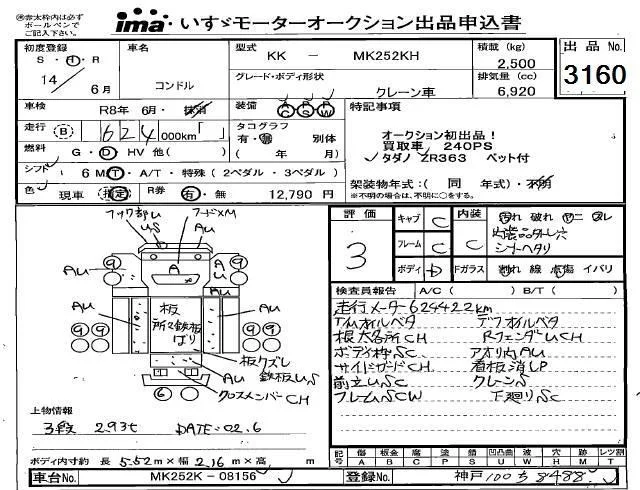 ㊟赤太枠内は必ず
ボールペンで
ご記入下さい。
ima いすゞモーターオークション出品申込書
初度登録
S・H・R
14 6月
車名
コンドル
型式
KK － MK252KH
グレード・ボディ形状
クレーン車
積載 (kg)
2,500
排気量 (cc)
6,920
出品 No.
3160
車検 R8年 6月・抹消
装備 AC PS PW
特記事項
走行 (B) 624,000km「 」
タコグラフ 別体
有・無 ( 年 月)
オークション初出品！
買取車 240PS
タダノ ZR363 ベット付
燃料 G・D HV 他( )
シフト 6 MT・A/T・特殊 (2ペダル・3ペダル)
色 現車 指定 R券 有・無 12,790 円
架装物年式:( 同 年式)・不明
※不明の場合は、不明に〇をする。
フック部U
US
フードXM
AU
AU
A
AU
AU
AU
AU
板
所々鉄板
ばり
AU
板クズレ
AU
鉄板US
クロスメンバーCH
9
9
9 9
9 9
6
評価
3
キャブ C
フレーム C
ボディ D
内装 C
汚れ 破れ ヤニ ズレ
内装品外し穴
シートヘタリ
Fガラス 割れ 線 点傷 イバリ
検査員報告 A/C ( ) B/T ( )
走行メーター624422km
デフオイルベタ
根太各所CH RフェンダーUCH
ボディ枠SC アオリ内AU
サイドガードCH 看板消しP
前立US クレーンS
フレームSCW 下廻りSC
上物情報
3段 2.93t DATE:02.6
ボディ内寸約 長 5.52m×幅 2.16m×高 m
記号 傷 A 板金 B 腐 C 塗 P 錆 S 凹凸曲 U 波 W 穴 H 跡 M レツ割 T
車台No. MK252K - 08156
登録No. 神戸100ち8488